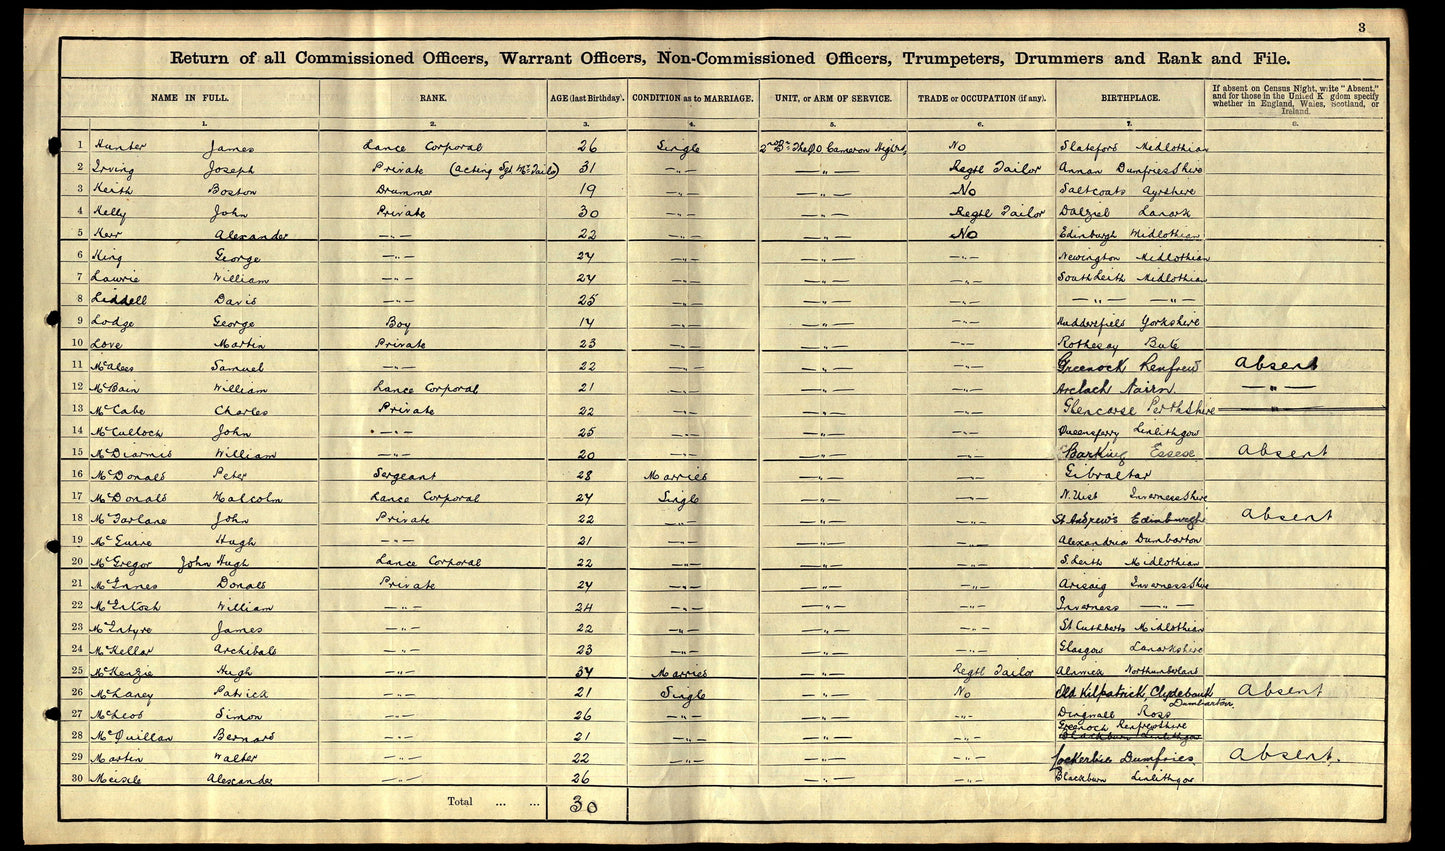 3
Return of all Commissioned Officers, Warrant Officers, Non-Commissioned Officers, Trumpeters, Drummers and Rank and File.
NAME IN FULL. RANK. AGE (last Birthday). CONDITION as to MARRIAGE. UNIT, or ARM OF SERVICE. TRADE or OCCUPATION (if any). BIRTHPLACE. If absent on Census Night, write "Absent," and for those in the United K gdom specify whether in England, Wales, Scotland, or Ireland.
1. 2. 3. 4. 5. 6. 7. 8.
1 Hunter James Lance Corporal 26 Single 2nd Bn The QO Cameron Highrs No Slateford Midlothian
2 Irving Joseph Private (acting Sgt Mr Tailor) 31 —"— —"— Regtl Tailor Annan Dumfriesshire
3 Keith Boston Drummer 19 —"— —"— No Saltcoats Ayrshire
4 Kelly John Private 30 —"— —"— Regtl Tailor Dalziel Lanark
5 Kerr Alexander —"— 22 —"— —"— No Edinburgh Midlothian
6 King George —"— 24 —"— —"— —"— Newington Midlothian
7 Lawrie William —"— 24 —"— —"— —"— South Leith Midlothian
8 Liddell David —"— 25 —"— —"— —"— —"— —"—
9 Lodge George Boy 14 —"— —"— —"— Huddersfield Yorkshire
10 Love Martin Private 23 —"— —"— —"— Rothesay Bute
11 McAlees Samuel —"— 22 —"— —"— —"— Greenock Renfrew Absent
12 McBain William Lance Corporal 21 —"— —"— —"— Auldearn Nairn —"—
13 McCabe Charles Private 22 —"— —"— —"— Glencorse Perthshire —"—
14 McCulloch John —"— 25 —"— —"— —"— Queensferry Linlithgow
15 McDiarmid William —"— 20 —"— —"— —"— Barking Essex Absent
16 McDonald Peter Sergeant 28 Married —"— —"— Gibraltar
17 McDonald Malcolm Lance Corporal 24 Single —"— —"— N. Uist Invernessshire
18 McFarlane John Private 22 —"— —"— —"— St Andrew's Edinburgh Absent
19 McGuire Hugh —"— 21 —"— —"— —"— Alexandria Dumbarton
20 McGregor John Hugh Lance Corporal 22 —"— —"— —"— S. Leith Midlothian
21 McInnes Donald Private 24 —"— —"— —"— Arisaig Invernessshire
22 McIntosh William —"— 24 —"— —"— —"— Inverness —"—
23 McIntyre James —"— 22 —"— —"— —"— St Cuthberts Midlothian
24 McKellar Archibald —"— 23 —"— —"— —"— Glasgow Lanarkshire
25 McKenzie Hugh —"— 34 Married —"— Regtl Tailor Alnwick Northumberland
26 McLaney Patrick —"— 21 Single —"— No Old Kilpatrick, Clydebank Dumbarton. Absent
27 McLeod Simon —"— 26 —"— —"— —"— Dingwall Ross
28 McQuillan Bernard —"— 21 —"— —"— —"— Greenock Renfrewshire
29 Martin Walter —"— 22 —"— —"— —"— Lockerbie Dumfries Absent.
30 Meikle Alexander —"— 26 —"— —"— Blackburn Linlithgow
Total ... ... 30